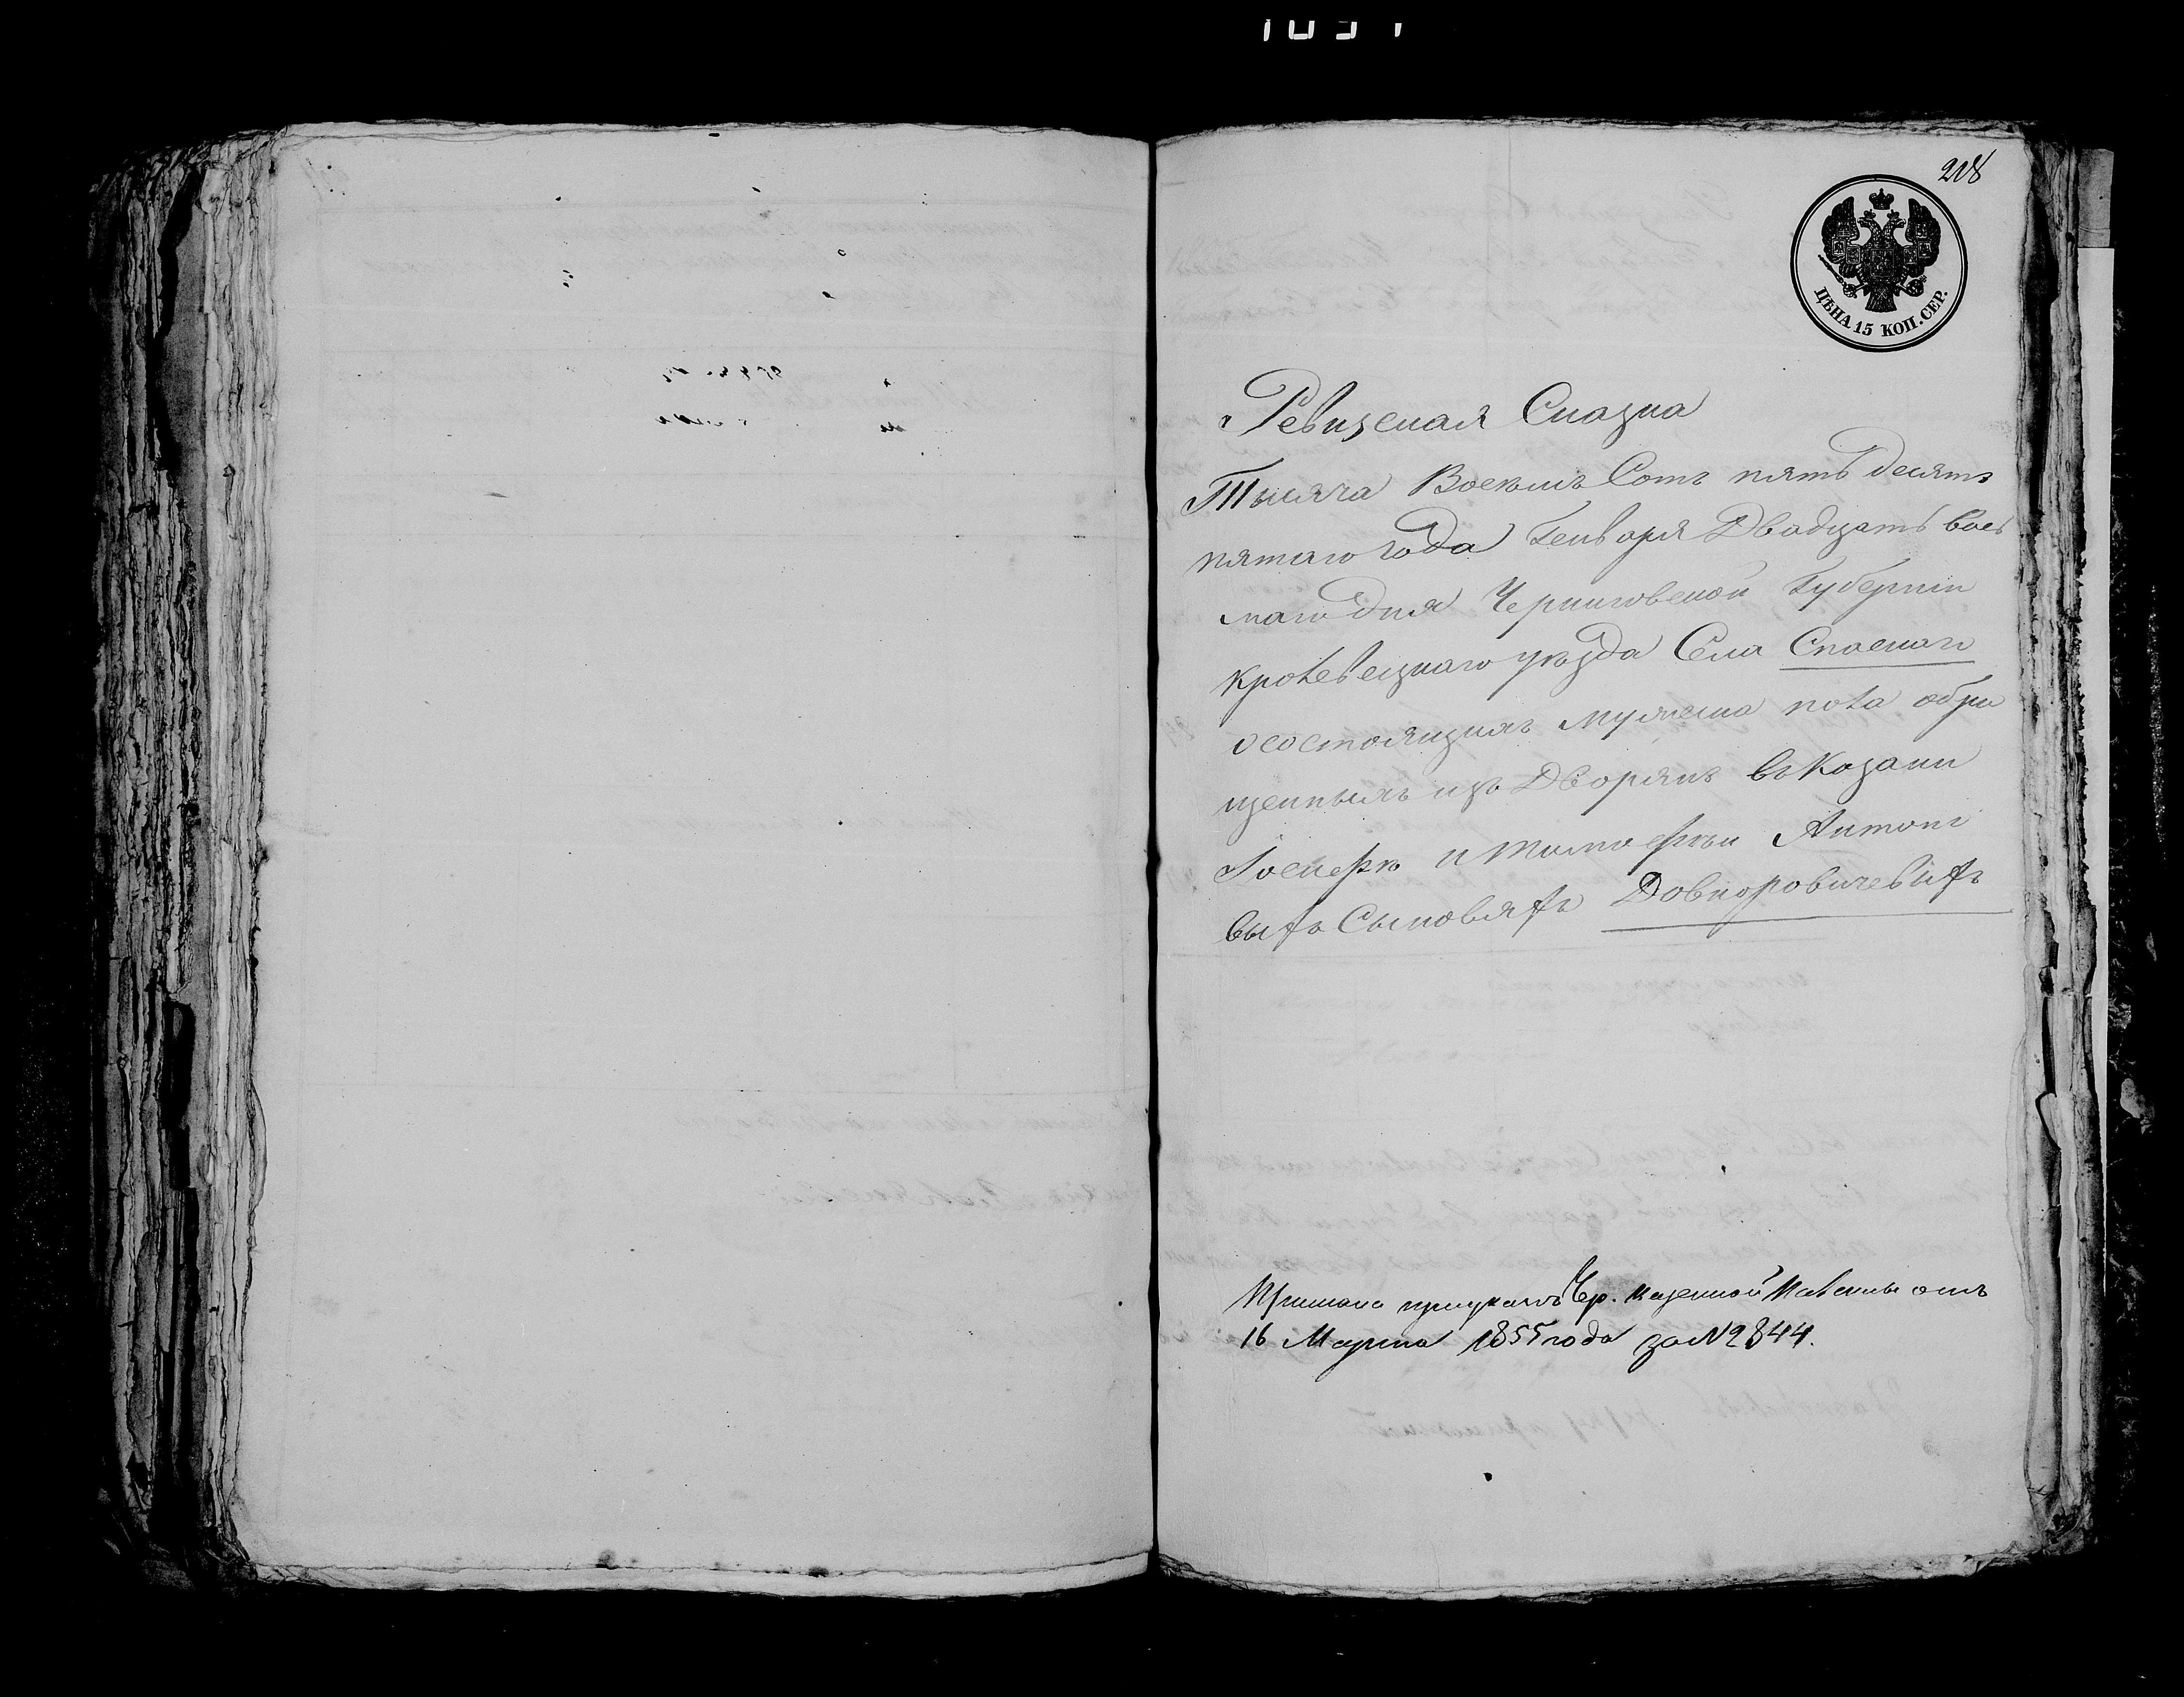 218
ЦѢНА 15 КОП. СЕР.
Ревизская Сказка
Тысяча Восемъ Сотъ пять десятъ
пятаго года Генваря Двадцать вось
маго дня Черниговской Губернiи
кролевецкаго уѣзда Села Спаскаго
осостоящихъ мужеска пола обра
щенныхъ изъ Дворянъ въ Казаки
Iосифѣ и Тимофѣи Антоно
выхъ Сыновяхъ Довноровичевыхъ
при указѣ Чер. казенной Палаты отъ
16 Марта 1855 года за № 2844.